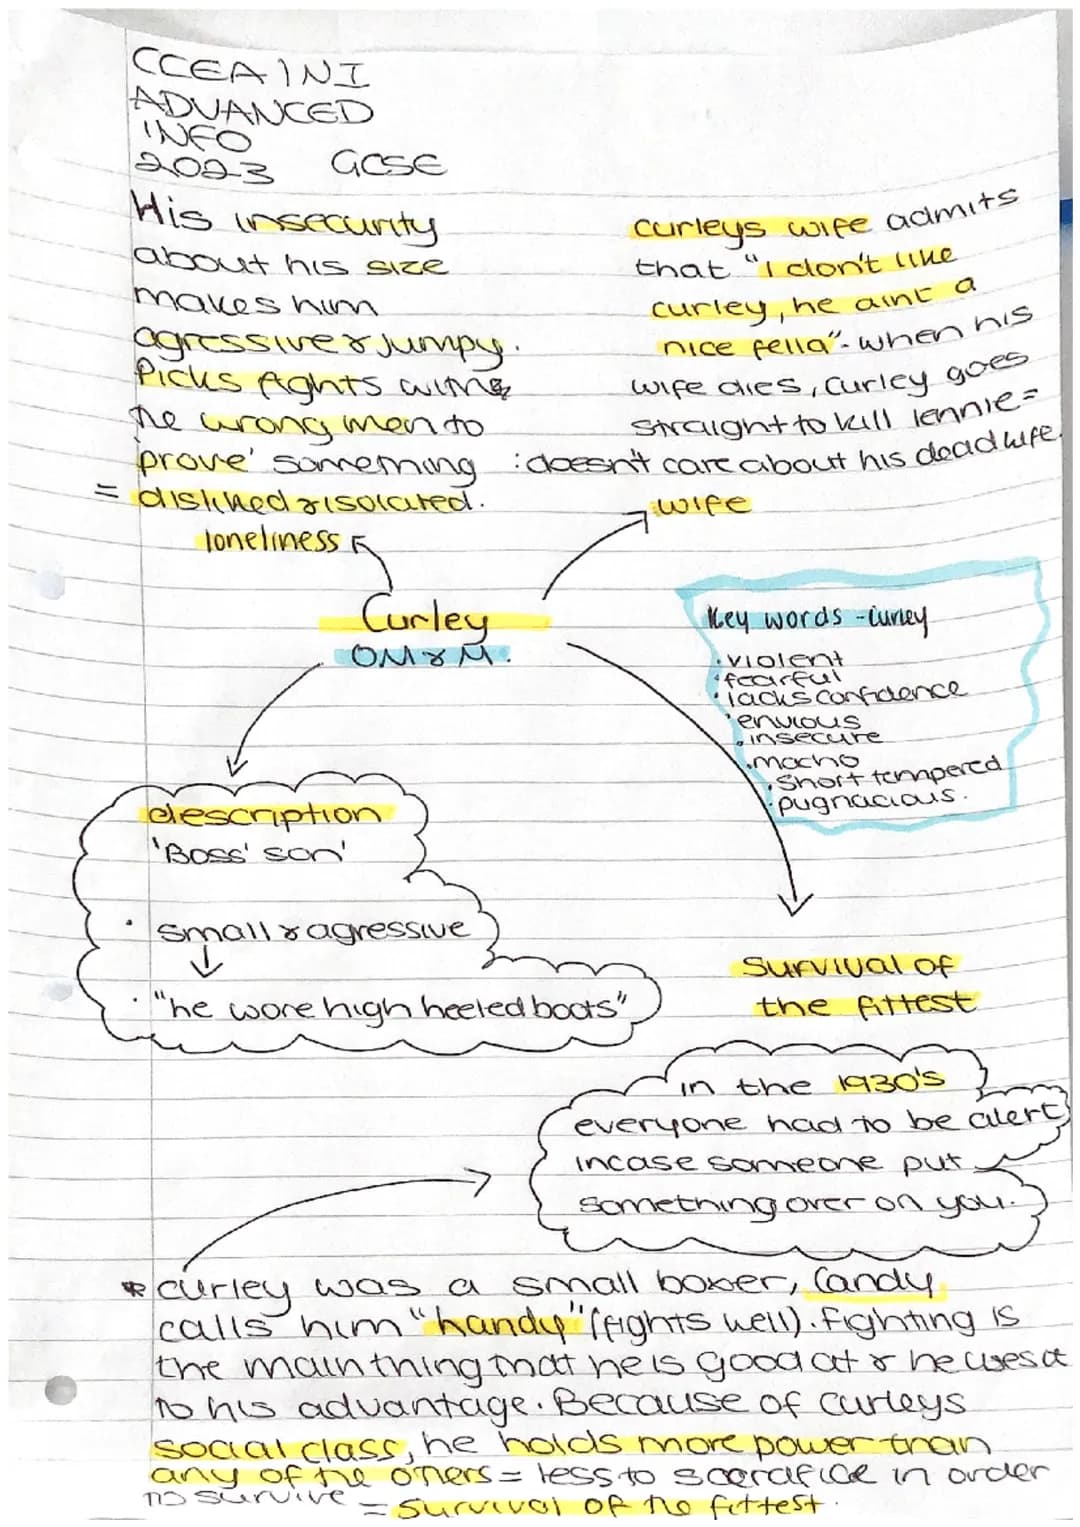 CCEA | NI
ADVANCED
INFO
2023 GCSE
His insecurity
about his size
makes him
agressive & jumpy.
Picks fights with
the wrong men to
'prove' something
= disliked & isolated.
loneliness
curleys wife admits
that "I don't like
curley, he aint a
nice fella" - when his
wife dies, curley goes
straight to kill lennie =
: doesn't care about his dead wife.
wife
Curley
OM & M.
Key words - Curley
· violent
· fearful
· lacks confidence
· envious
· insecure
· macho
· Short tempered
· pugnacious.
description
'Boss' son'
· small & agressive
· "he wore high heeled boots"
Survival of
the fittest
in the 1930's
everyone had to be alert
incase someone put
something over on you.
* curley was a small boxer, Candy
calls him "handy" (fights well). Fighting is
the main thing that he is good at & he uses it
to his advantage. Because of curleys
social class, he holds more power than
any of the others = less to sacrafice in order
to survive = survival of the fittest.